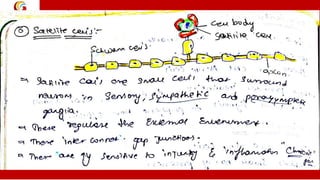 ⑤ Satellite cells:-
cell body
satellite cell
Schwann cells
axon
→ Satellite cells are small cells that surround
neurons in sensory, sympathetic and parasympathetic
ganglia.
→ These regulate the External Environment.
→ These inter connect gap junctions.
→ They are sensitive to injury & inflammation